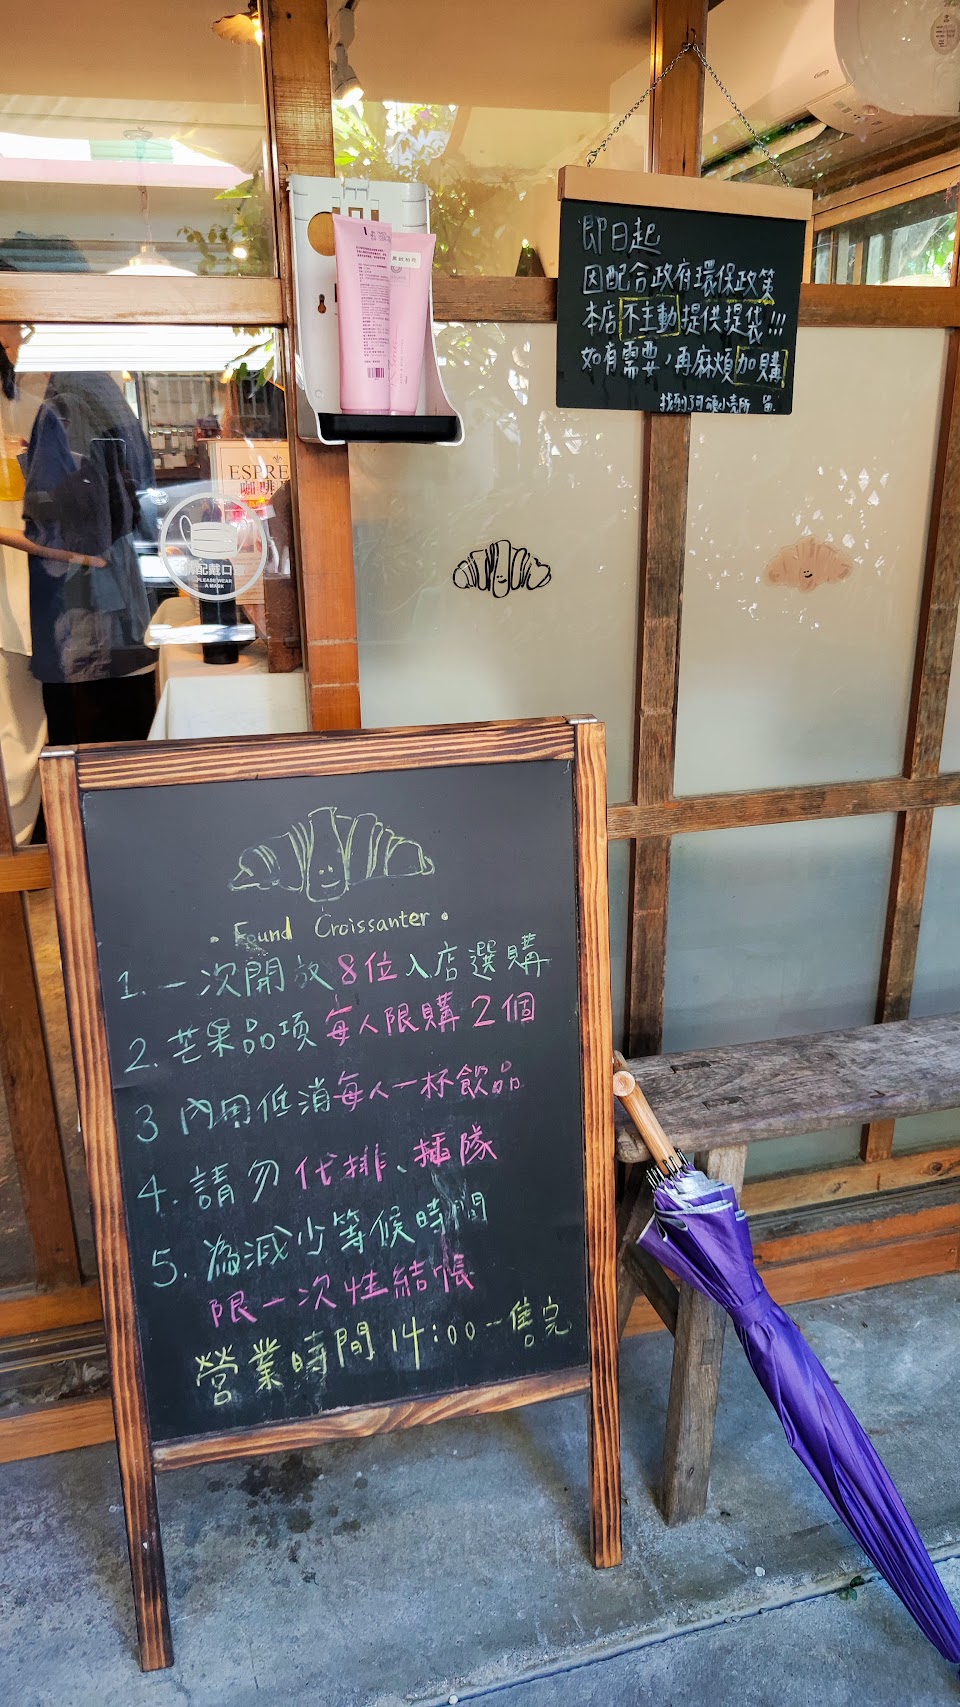 即日起
因配合政府環保政策
本店不主動提供提袋!!!
如有需要,再麻煩加購
找到了可頌小売所
ESPRE
咖啡
請配戴口罩
PLEASE WEAR
A MASK
• Found Croissanter •
1. 一次開放8位入店選購
2. 芒果品項每人限購2個
3 內用低消每人一杯飲品
4. 請勿代排、插隊
5. 為減少等候時間
限一次性結帳
營業時間14:00--售完